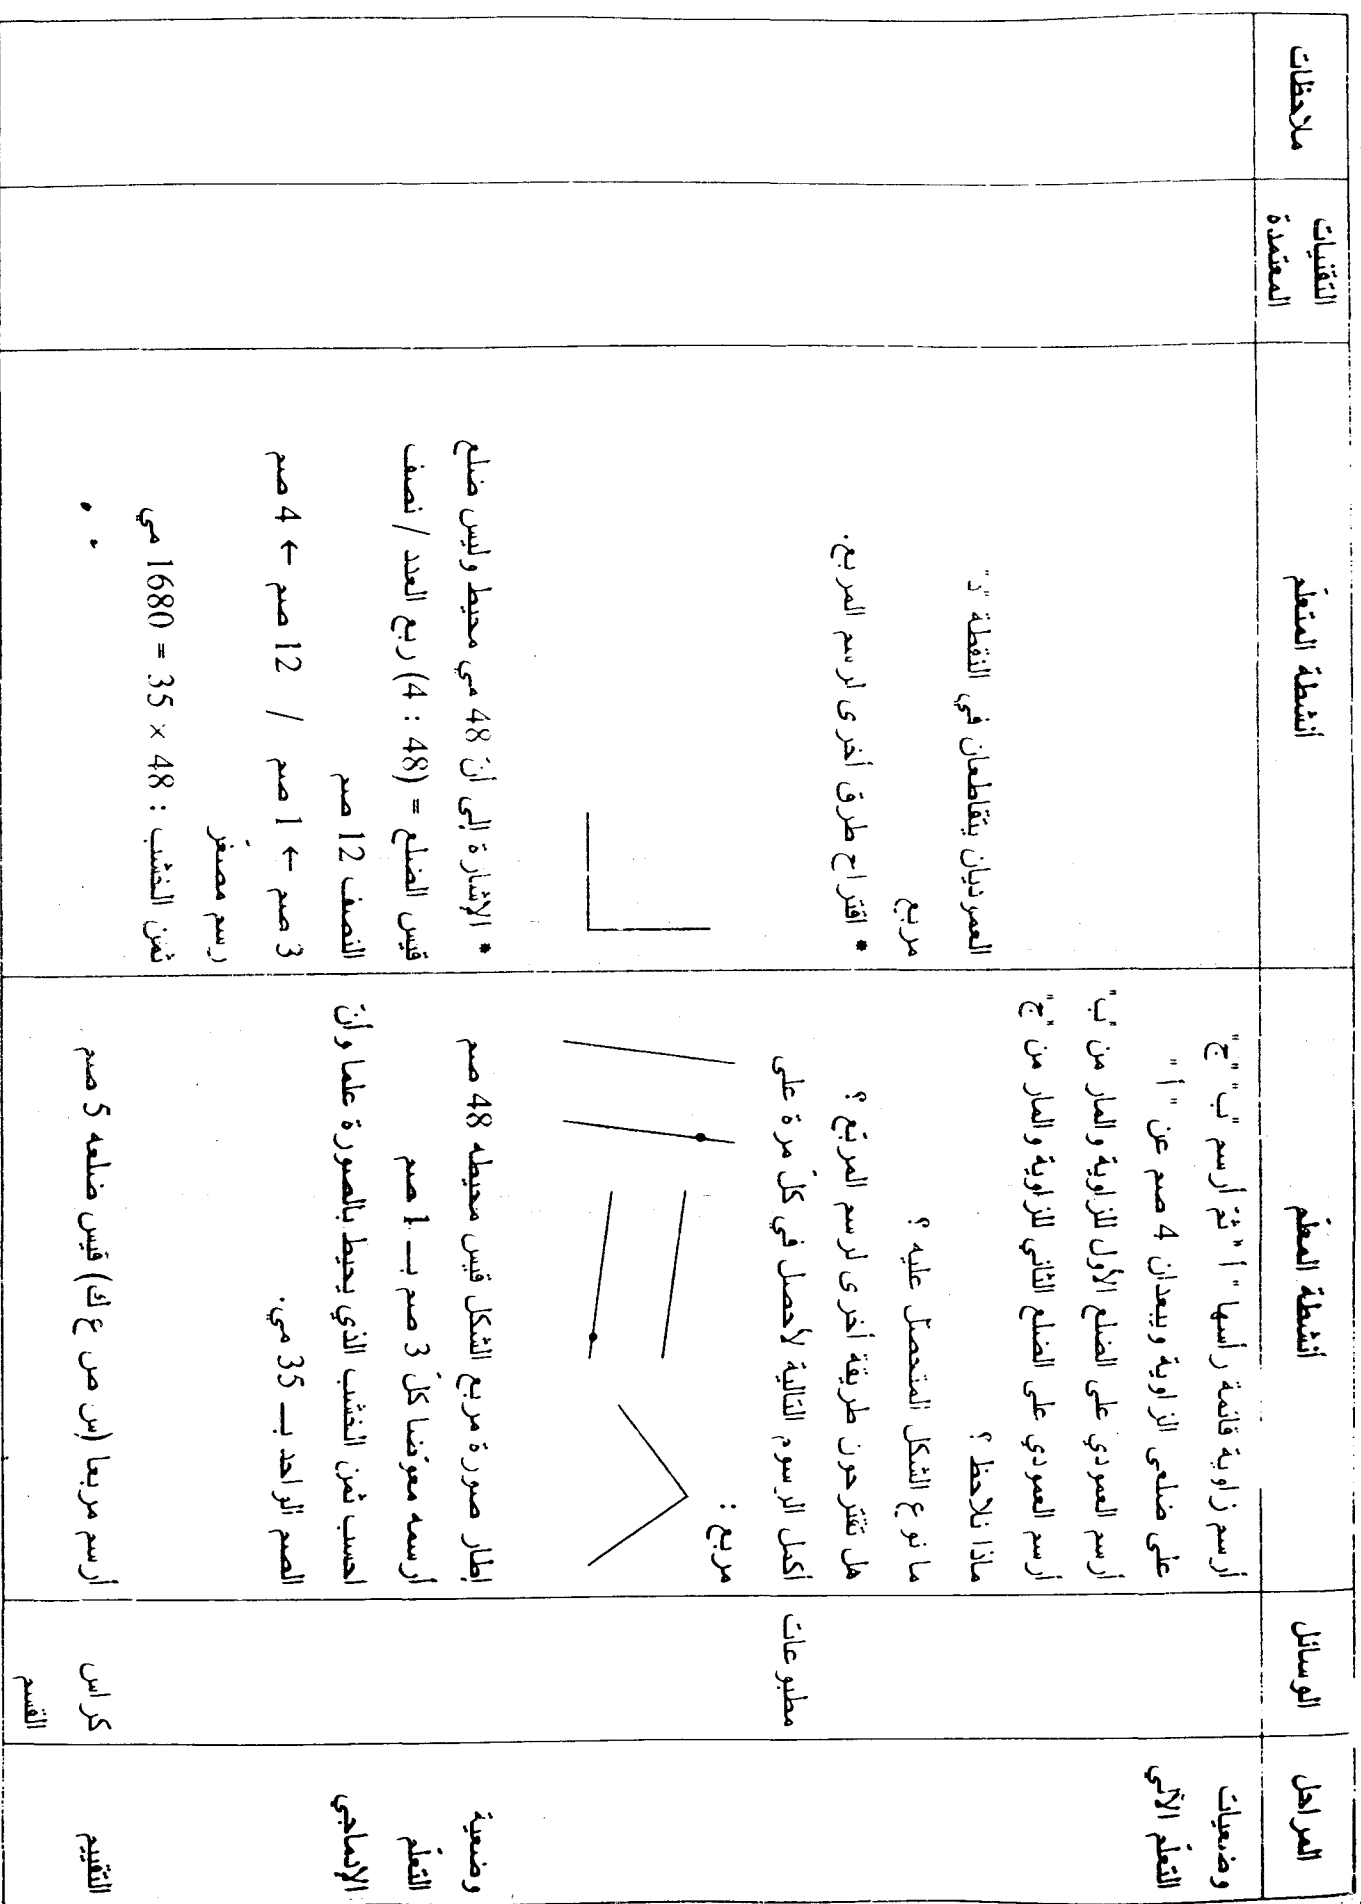 المراحل
الوسائل
أنشطة المعلّم
أنشطة المتعلّم
التقنيات
المعتمدة
ملاحظات
وضعيات
التعلّم الآلي
أرسم زاوية قائمة رأسها "أ" ثمّ أرسم "ب" "ج"
على ضلعي الزاوية ويبعدان 4 صم عن "أ"
أرسم العمودي على الضلع الأول للزاوية والمار من "ب"
أرسم العمودي على الضلع الثاني للزاوية والمار من "ج"
ماذا نلاحظ ؟
العموديان يتقاطعان في النقطة "د"
ما نوع الشكل المتحصل عليه ؟
مربع
هل تقترحون طريقة أخرى لرسم المربّع ؟
* اقتراح طرق أخرى لرسم المربع.
مطبوعات
أكمل الرسوم التالية لأحصل في كلّ مرة على
مربع :
وضعية
التعلّم
الإدماجي
إطار صورة مربع الشكل قيس محيطه 48 صم
أرسمه معوّضا كلّ 3 صم بـ 1 صم
احسب ثمن الخشب الذي يحيط بالصورة علما وأنّ
الصم الواحد بـ 35 مي.
* الإشارة إلى أنّ 48 هي محيط وليس ضلع
قيس الضلع = (48 : 4) ربع العدد / نصف
النصف 12 صم
3 صم ← 1 صم / 12 صم ← 4 صم
رسم مصغّر
ثمن الخشب : 48 × 35 = 1680 مي
التقييم
كراس
القسم
أرسم مربعا (س ص ع ك) قيس ضلعه 5 صم